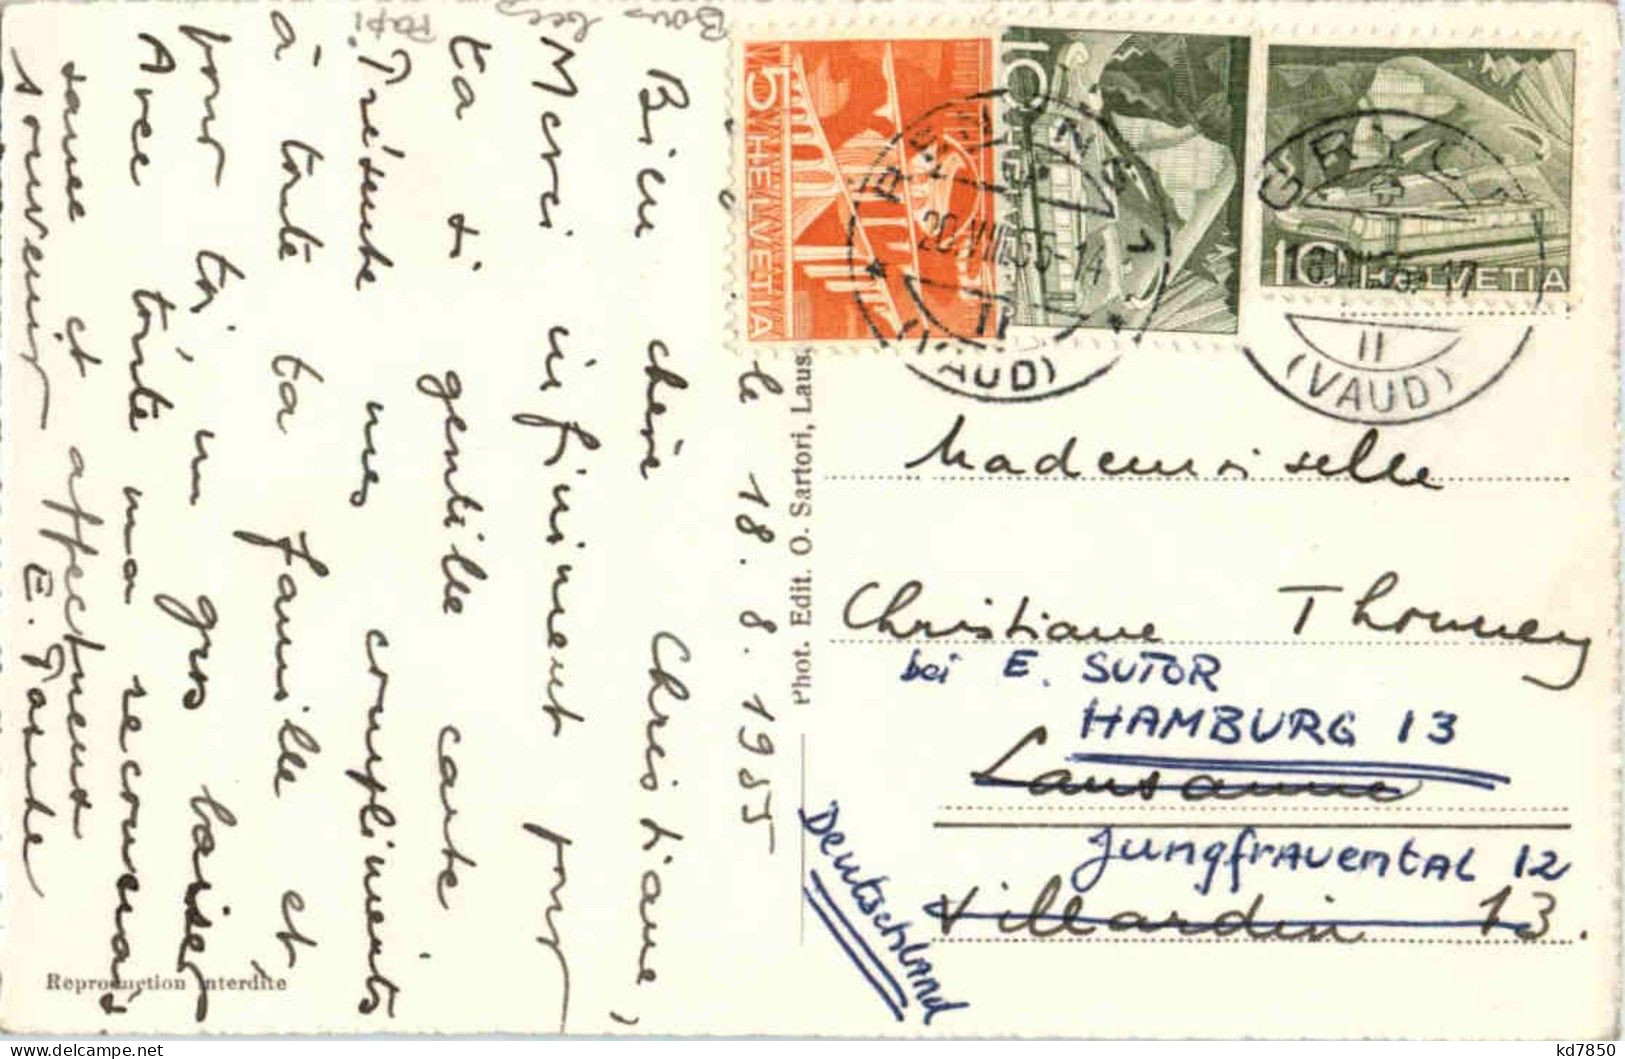 le 18.8.1955
Bien chère Christiane,
Merci infiniment pour
ta si gentille carte
. Présente mes compliments
à toute ta famille et
pour toi, un gros baiser
Avec toute ma reconnais
sance et affectueux
souvenir E. Tante
Bons
Papi
Reproduction interdite
Phot. Edit. O. Sartori, Laus
5 HELVETIA
10 HELVETIA
10 HELVETIA
RENENS 1
20.VIII.55-14
II
(VAUD)
GRYON
17
II
(VAUD)
Mademoiselle
Christiane Thonney
bei E. SUTOR
HAMBURG 13
Lausanne
Jungfrauental 12
Villardin 13.
Deutschland
kd7850